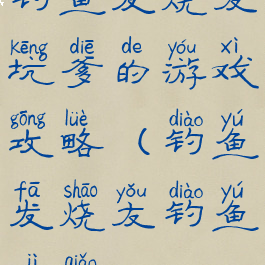 钓鱼发烧友
kēng diē de yóu xì
坑爹的游戏
gōng lüè diào yú
攻略（钓鱼
fā shāo yǒu diào yú
发烧友钓鱼
jì qiǎo